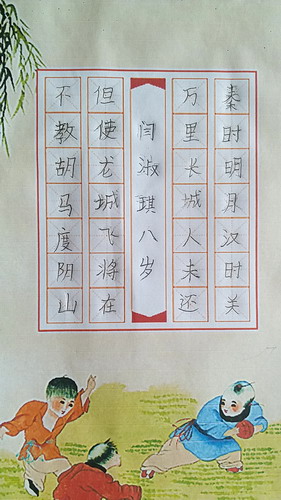 秦时明月汉时关
万里长城人未还
闫淑琪八岁
但使龙城飞将在
不教胡马度阴山